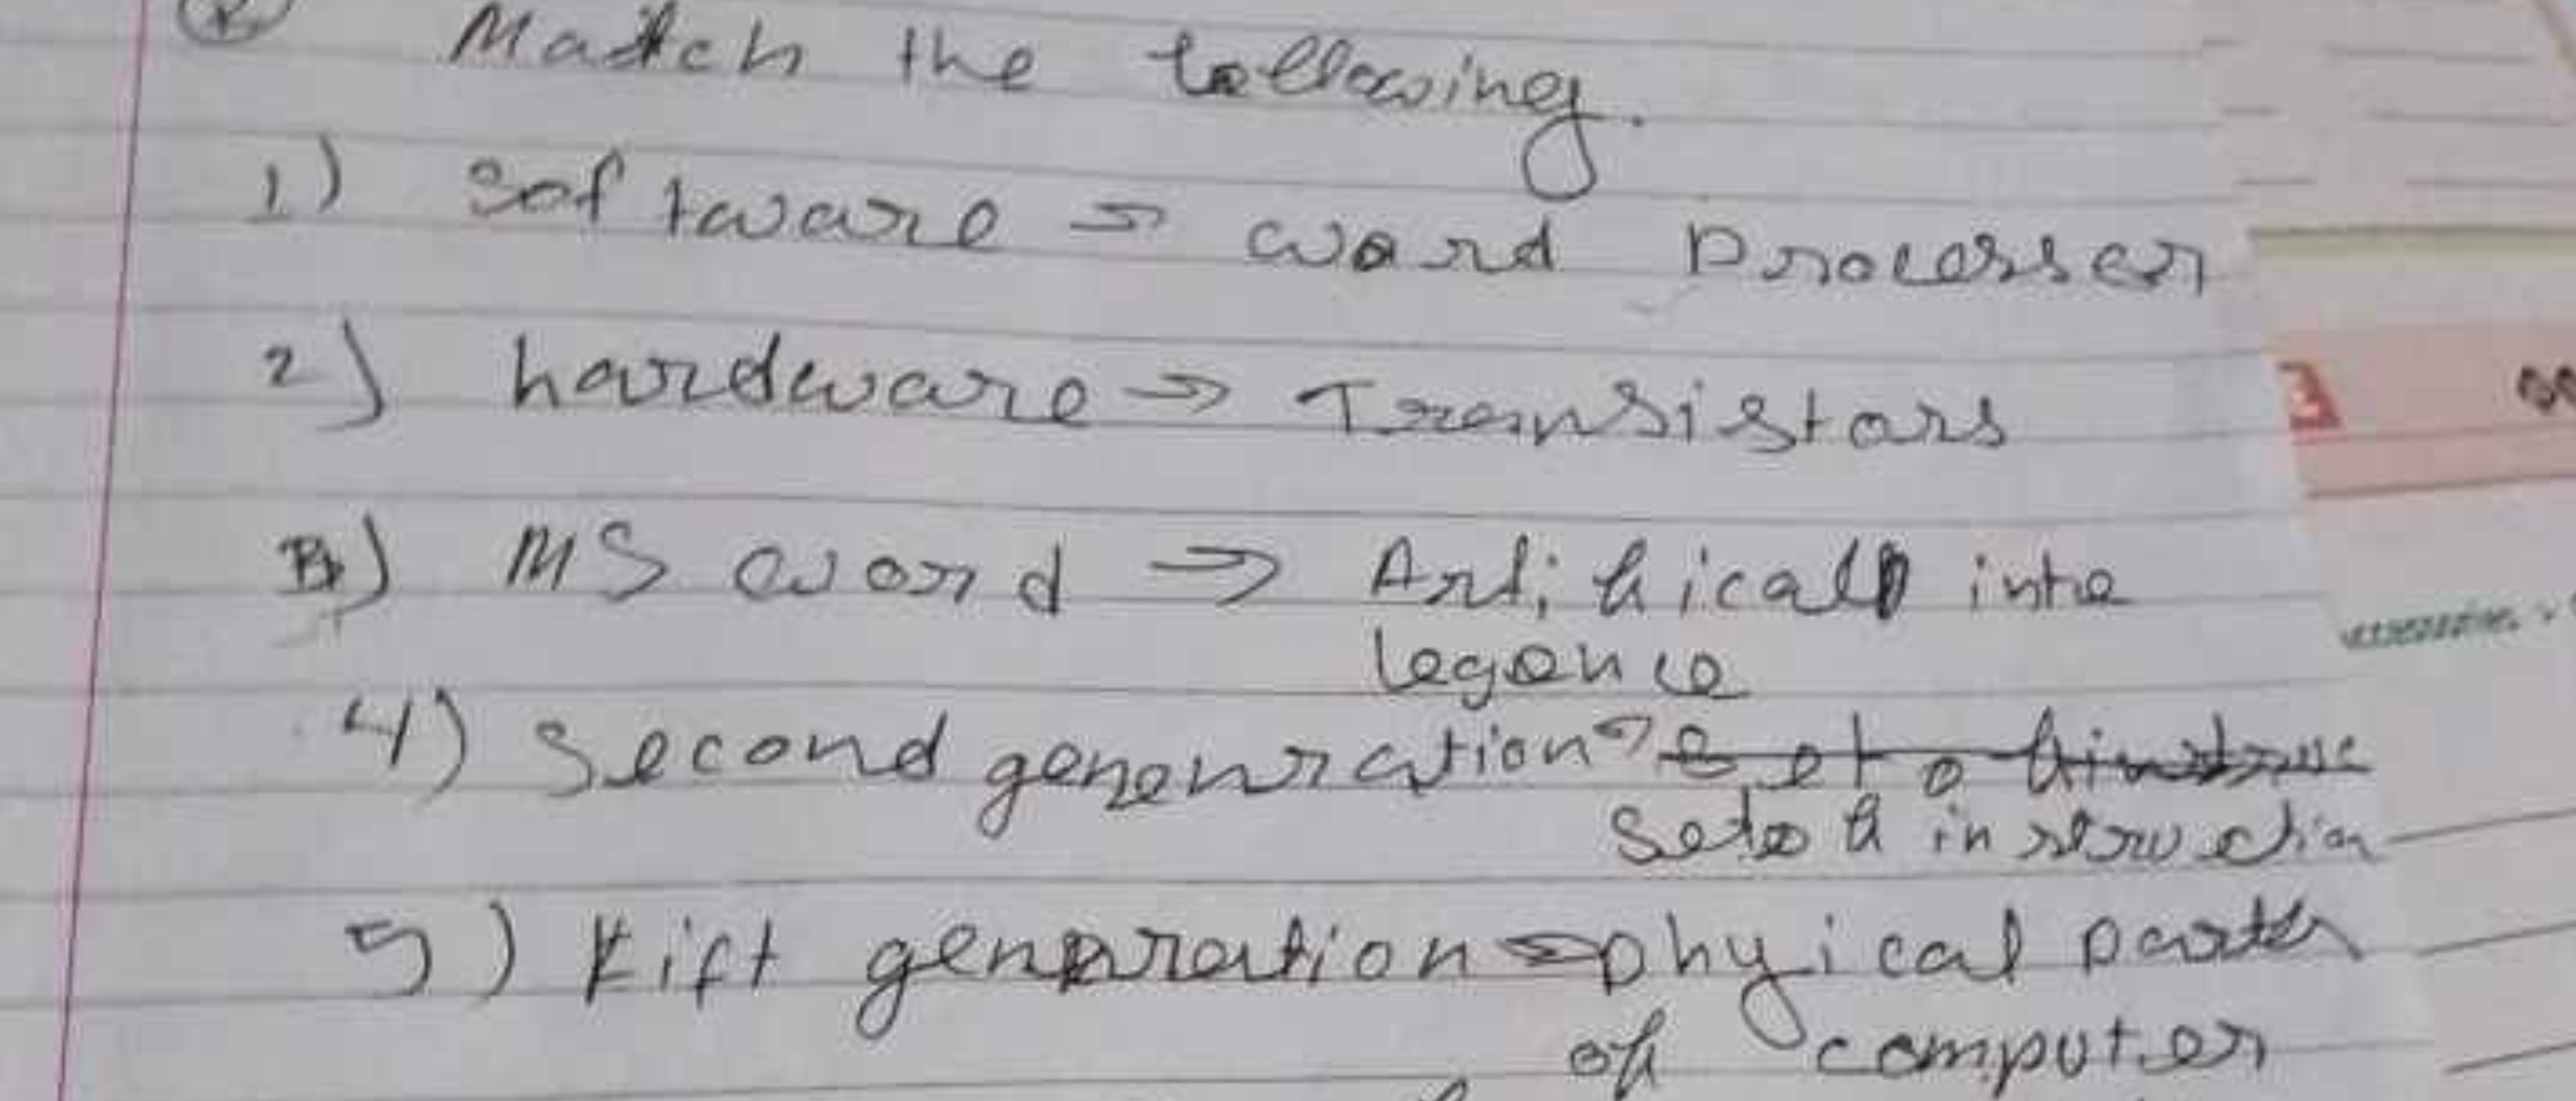 Match the following.
1) Software → word Processer
2) hardware → Transistors
3) MS word → Artifical inte
legence
4) Second genenration →
Seto f instruction
5) Fift genaration → phyical parts
of computer